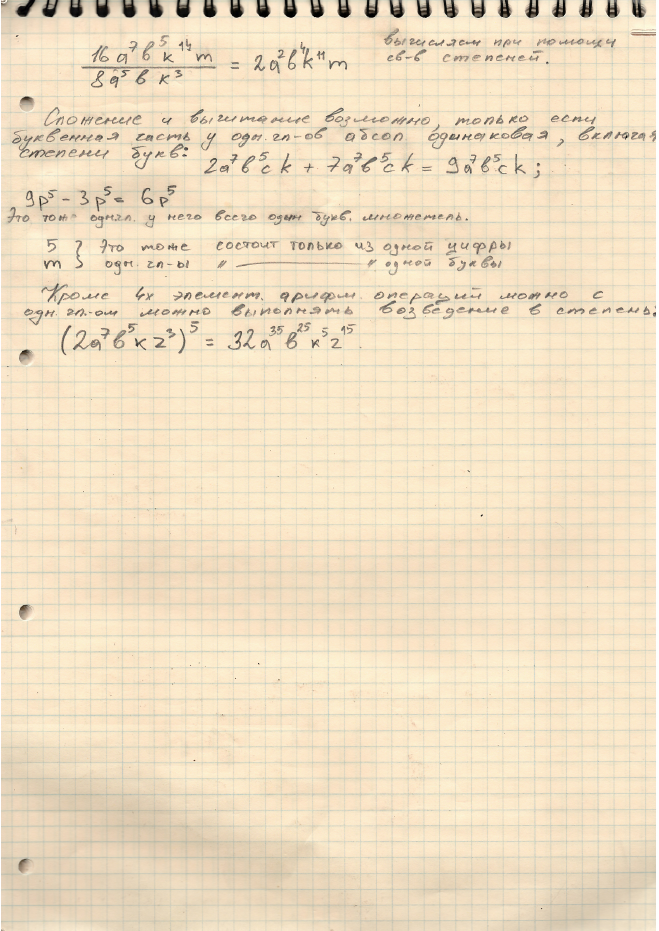 16a⁷в⁵к¹⁴m / 8a⁵вк³ = 2a²в⁴k¹¹m
вычисляем при помощи
св-в степеней.
Сложение и вычитание возможно, только если
буквенная часть у одн.чл-ов абсол. одинаковая, включая
степени букв:
2a⁷в⁵ck + 7a⁷в⁵ck = 9a⁷в⁵ck;
9p⁵ - 3p⁵ = 6p⁵
Это тож одн.чл. у него всего один букв. множетель.
5 } Это тоже состоит только из одной цифры
m } одн. чл-ы " ———— " одной буквы
Кроме 4х элемент. арифм. операций можно с
одн.чл-ом можно выполнять возведение в степень:
(2a⁷в⁵кz³)⁵ = 32a³⁵в²⁵к⁵z¹⁵.